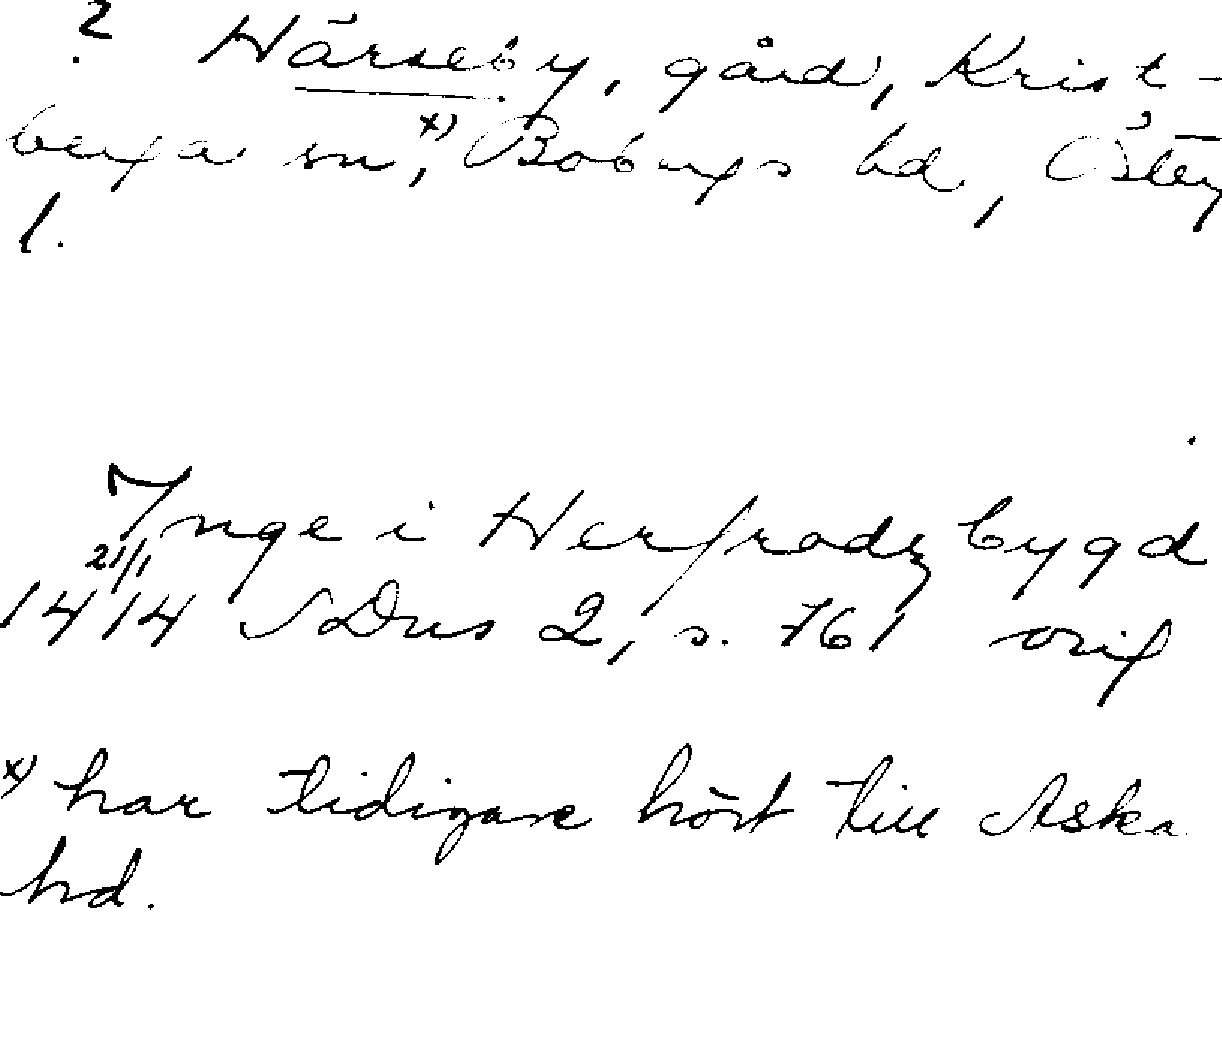 ? Härseby, gård, Krist-
berga sn,x) Bobergs hd, Österg
l.
Inge i Herfradzbygd
21/1
1414 SDns 2, s. 761 orig
x) har tidigare hört till Aska
hd.